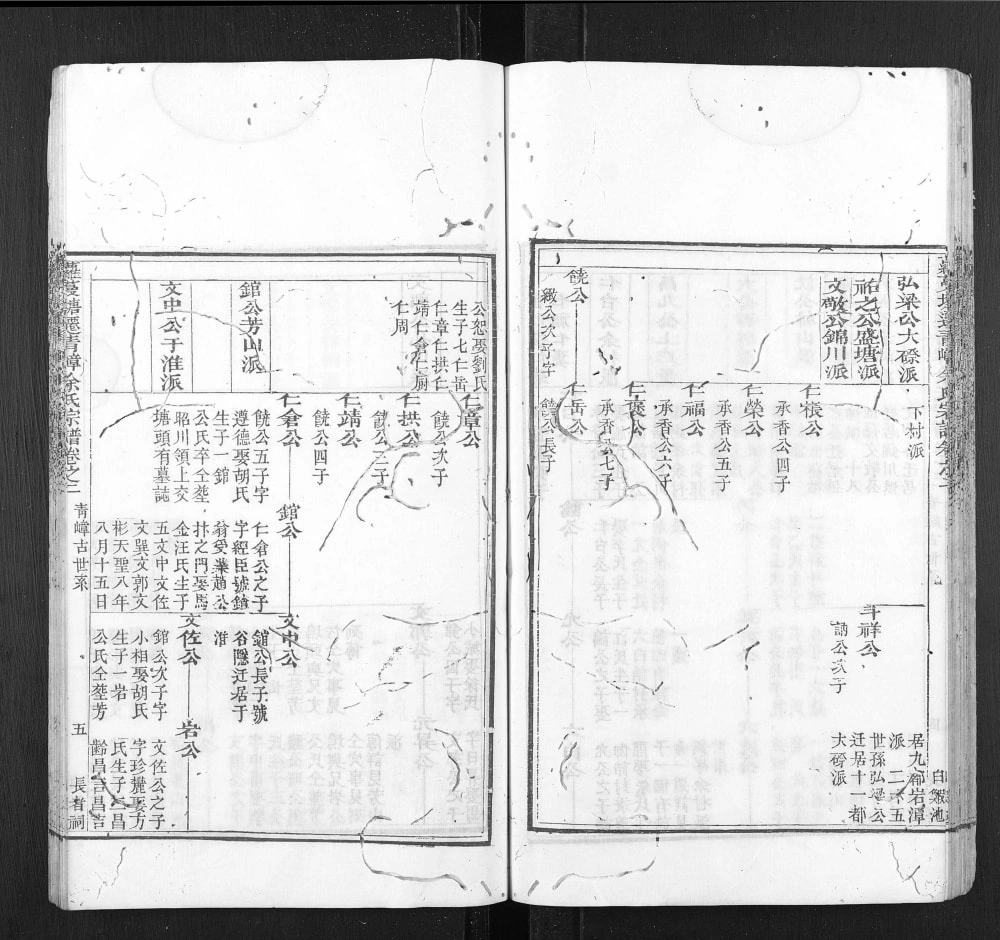 弘梁公大磜派
祐之公盛塘派
文敬公錦川派
下村派
仁禄公
承香公四子
仁榮公
承香公五子
仁福公
承香公六子
仁褒公
承香公七子
斗祥公
居九都岩潭
世孫弘梁公
迁居十一都
大磜派
饒公
緻公次子字
仁岳公
饒公長子
公恕娶劉氏
生子七仁岳
仁章仁拱仁
靖仁倉仁厠
仁周
仁章公
饒公次子
仁拱公
饒公三子
仁靖公
饒公四子
仁倉公
饒公五子字
遵德娶胡氏
生子一錧
公氏卒仝塟
昭川領上交
塘頭有墓誌
錧公芳山派
文中公于淮派
錧公
仁倉公之子
字經臣號鎮
翁受業趙公
抃之門娶馬
金汪氏生子
五文中文佐
文巽文郭文
彬天聖八年
八月十五日
文中公
錧公長子號
谷隱迁居于
淮
文佐公
錧公次子字
小相娶胡氏
生子一岩
公氏仝塟芳
岩公
文佐公之子
字珍麓娶方
氏生子三昌
齡昌言昌吉
青嶂古世系
五
長者祠